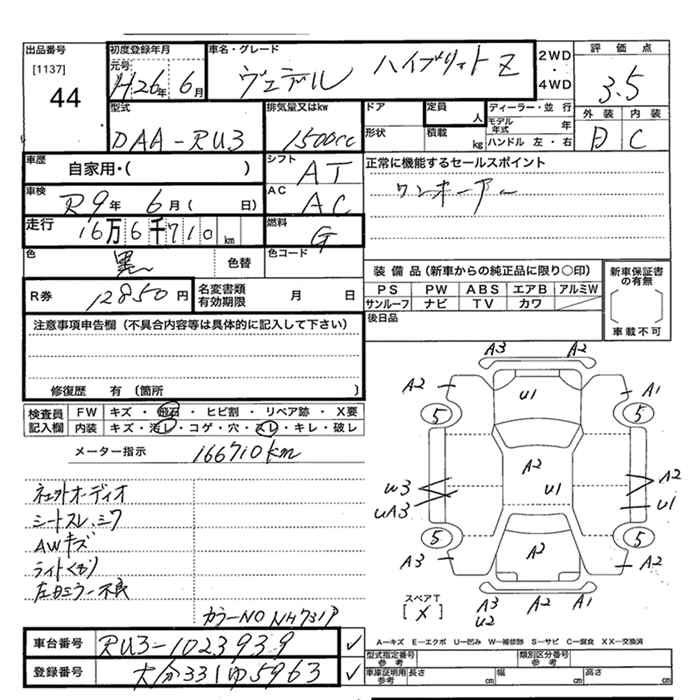 出品番号
[1137]
44
初度登録年月
元号
H26年 6月
車名・グレード
ヴェゼル ハイブリット Z
2WD
・
4WD
評価点
3.5
外装 内装
D C
型式
DAA-RU3
排気量又はkw
1500cc
ドア
形状
定員
人
積載
kg
ディーラー・並行
モデル年式 年
ハンドル 左・右
車歴
自家用・( )
シフト
AT
正常に機能するセールスポイント
ワンオーナー
車検
R9年 6月( 日)
AC
AC
走行
16万6千710km
燃料
G
色
黒
色替
色コード
R券
12850円
名変書類
有効期限
月 日
装備品(新車からの純正品に限り○印)
PS PW ABS エアB アルミW
サンルーフ ナビ TV カワ
後日品
新車保証書の有無
車載不可
注意事項申告欄(不具合内容等は具体的に記入して下さい)
修復歴 有〔箇所 〕
検査員記入欄
FW キズ・飛石・ヒビ割・リペア跡・X要
内装 キズ・汚レ・コゲ・穴・スレ・キレ・破レ
メーター指示 166710km
ネットオーディオ
シートスレ、シワ
AWキズ
ライトくもり
左ドアミラー不良
カラーNO NH731P
A3 A2
A2 U1 A1
5 5
A2
U1
W3 A2
UA3 U1
5 5
A3 A2 A2
スペアT
[×]
A3 A2 A1
U2
車台番号 RU3-1023939 ✓
登録番号 大分331ゆ5963 ✓
A-キズ E-エクボ U-凹み W-補修跡 S-サビ C-腐食 XX-交換済
型式指定番号 参考
類別区分番号 参考
車庫証明用 参考 長さ cm 幅 cm 高さ cm